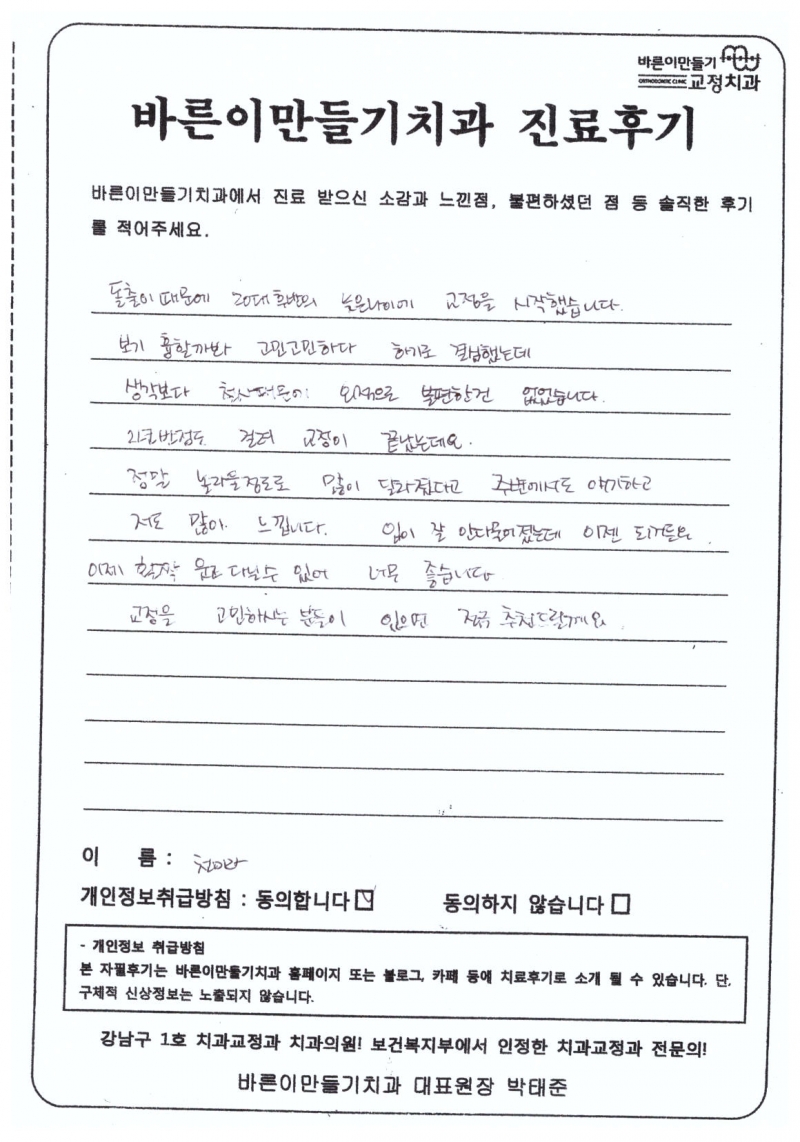 바른이만들기
ORTHODONTIC CLINIC 교정치과
바른이만들기치과 진료후기
바른이만들기치과에서 진료 받으신 소감과 느낀점, 불편하셨던 점 등 솔직한 후기
를 적어주세요.
돌출이 때문에 20대 후반의 늦은나이에 교정을 시작했습니다.
보기 흉할까봐 고민고민하다 하기로 결심했는데
생각보다 외적으로 불편한건 없었습니다.
걸려 교정이 끝났는데요.
정말 놀라울정도로 많이 달라졌다고 주변에서도 얘기하고
저도 많이 느낍니다. 입이 잘 안다물어졌는데 이젠 되거든요.
이제 활짝 웃고 다닐수 있어 너무 좋습니다
교정을 고민하시는 분들이 있으면 적극 추천드릴게요.
이 름 :
개인정보취급방침 : 동의합니다 동의하지 않습니다
- 개인정보 취급방침
본 자필후기는 바른이만들기치과 홈페이지 또는 블로그, 카페 등에 치료후기로 소개 될 수 있습니다. 단,
구체적 신상정보는 노출되지 않습니다.
강남구 1호 치과교정과 치과의원! 보건복지부에서 인정한 치과교정과 전문의!
바른이만들기치과 대표원장 박태준